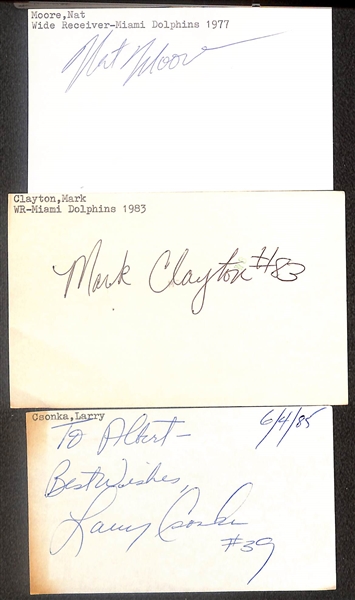 Moore,Nat
Wide Receiver-Miami Dolphins 1977
Nat Moore
Clayton,Mark
WR-Miami Dolphins 1983
Mark Clayton #83
Csonka,Larry
To Albert- 6/4/85
Best Wishes,
Larry Csonka
#39